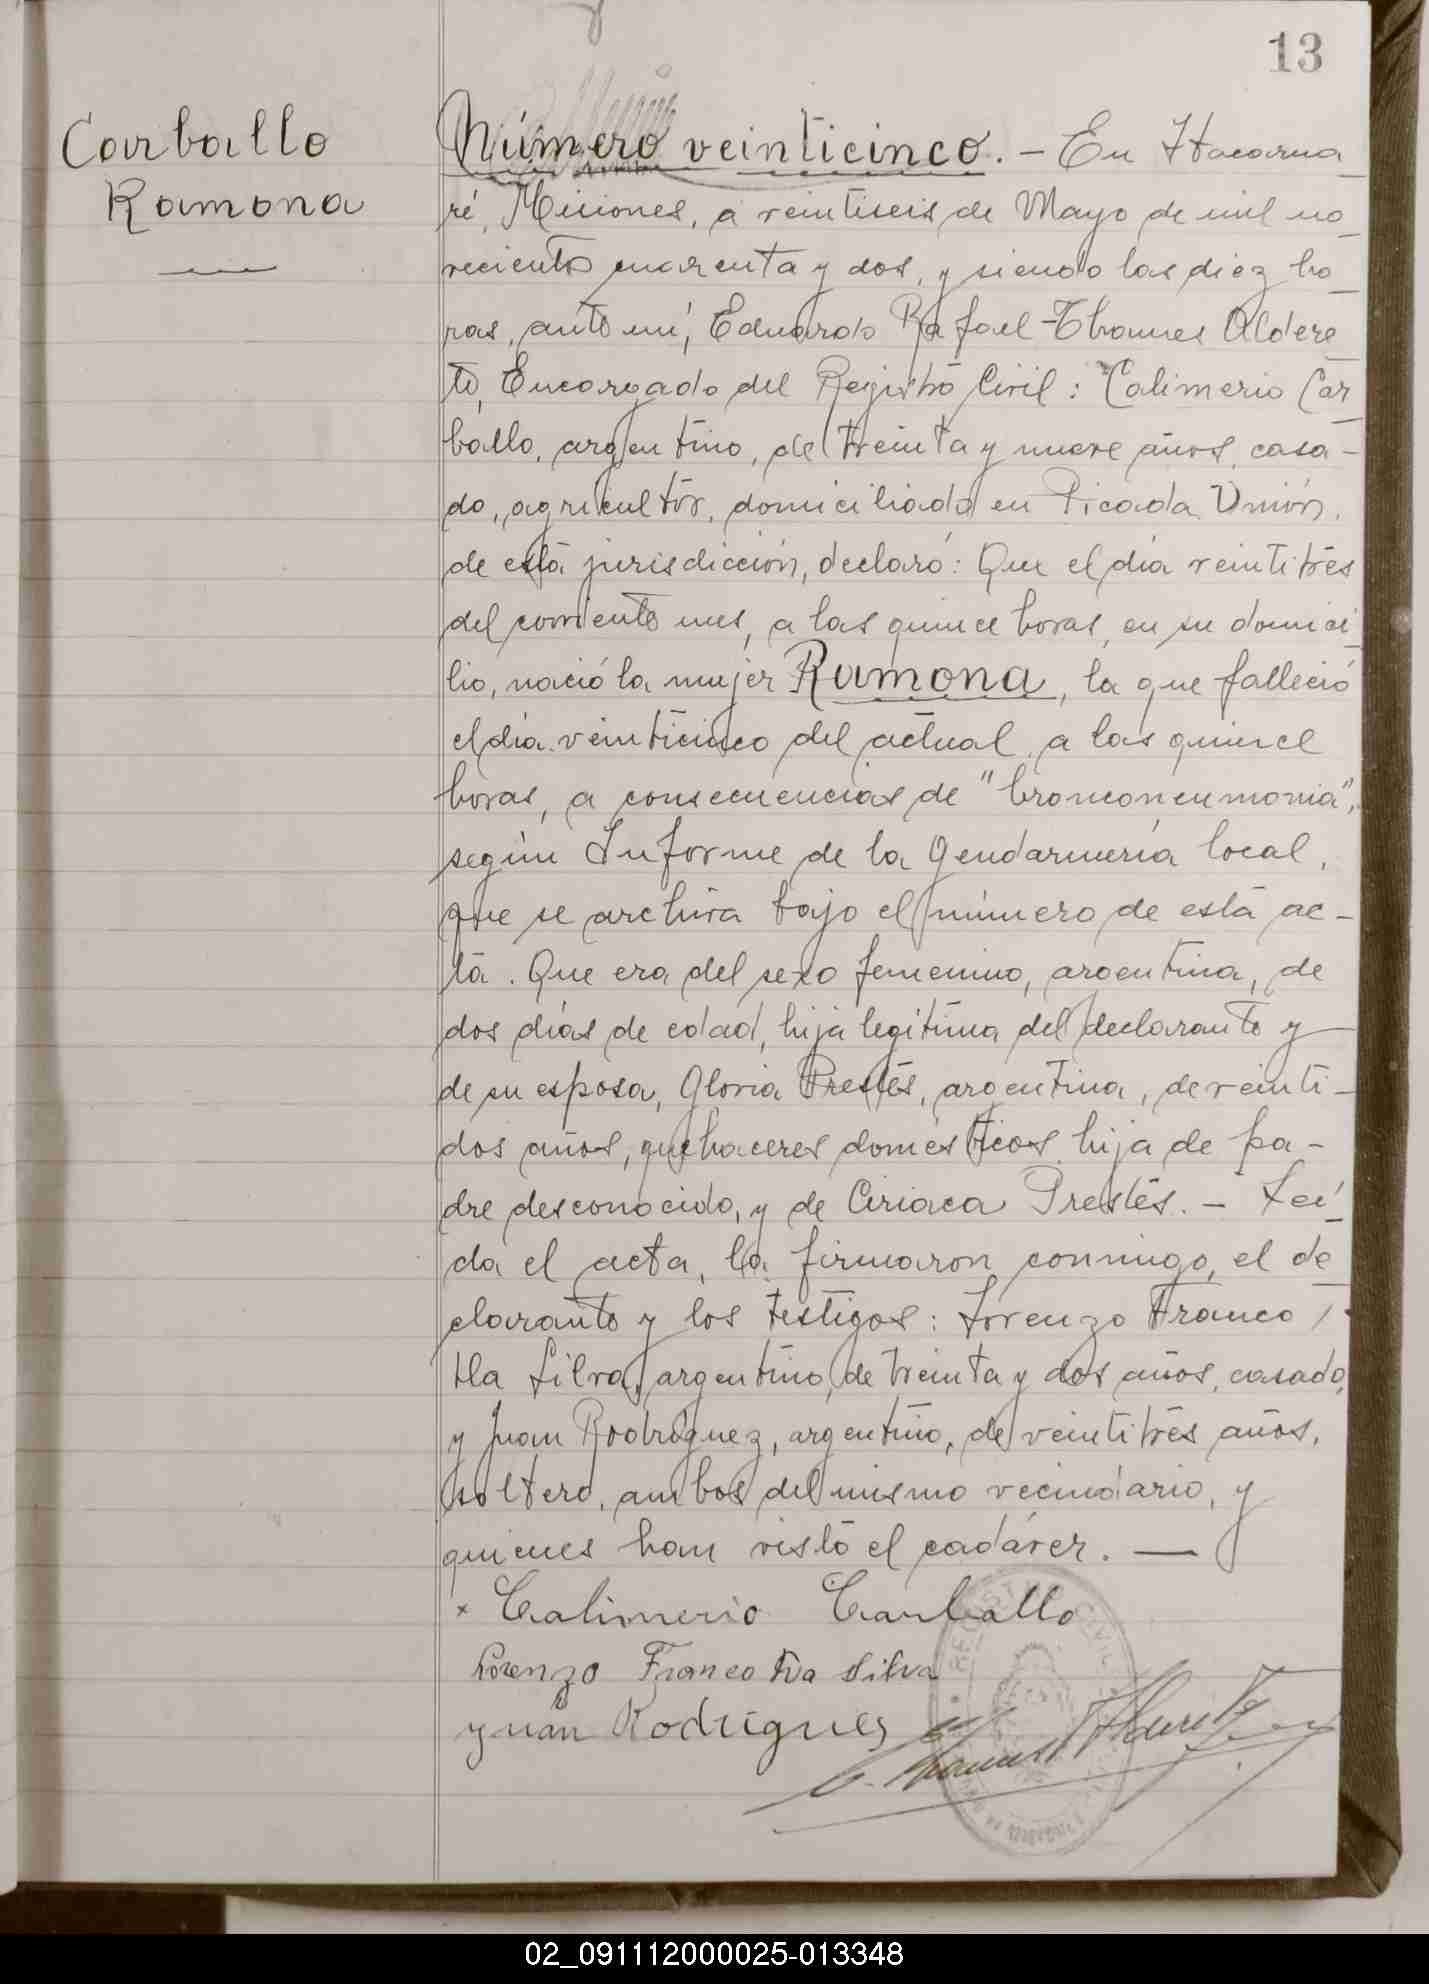 13
Carballo
Ramona
Número veinticinco. - En Itacarua
ré, Misiones, a veintiseis de Mayo de mil no_
vecientos cuarenta y dos, y siendo las diez ho_
ras, ante mí, Eduardo Rafael Thames Aldere_
te, Encargado del Registro Civil: Calimerio Car_
ballo, argentino, de treinta y nueve años, casa-
do, agricultor, domiciliado en Picada Unión,
de esta jurisdicción, declaró: Que el día veintitrés
del corriente mes, a las quince horas, en su domici_
lio, nació la mujer Ramona, la que falleció
el día veinticinco del actual, a las quince
horas, a consecuencias de "bronconeumonia",
según Informe de la Gendarmería local,
que se archiva bajo el número de esta ac-
ta. Que era del sexo femenino, argentina, de
dos días de edad, hija legítima del declarante y
de su esposa, Gloria Prestes, argentina, de veinti-
dos años, quehaceres domésticos, hija de pa-
dre desconocido, y de Ciriaca Prestes. - Leí_
da el acta, la firmaron conmigo, el de_
clarante y los testigos: Lorenzo Franco
Da Silva, argentino, de treinta y dos años, casado,
y Juan Rodríguez, argentino, de veintitrés años,
soltero, ambos del mismo vecindario, y
quienes han visto el cadáver. —
x Calimerio Carballo
Lorenzo Franco Da Silva
Juan Rodrigues
E. Thames Alderete
02_091112000025-013348